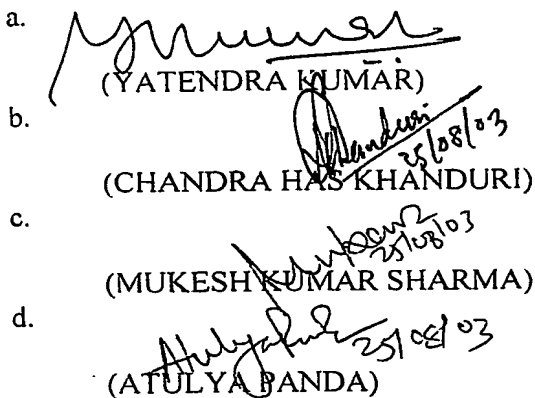 a.
(YATENDRA KUMAR)
b.
Khanduri
25/08/03
(CHANDRA HAS KHANDURI)
c.
25/08/03
(MUKESH KUMAR SHARMA)
d.
Atulya Panda 25/08/03
(ATULYA PANDA)